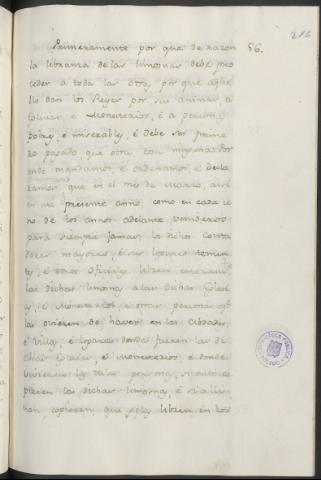 216
56.
Primeramente por que de razon
la libranza de las limosnas debe pre
ceder a toda las otras por que aque
llo dan los Reyes por sus animas, a
Iglesias, é Monesterios, é a personas
pobres, é miserables, é debe ser prime
ro pagado, que otra cosa ninguna: Por
ende mandamos, é ordenamos, é decla
ramos que en el mes de Marzo, assi
en este presente anno, como en cada u
no de los annos adelante venideros
para siempre jamas, los dichos Conta
dores mayores, é sus logares tenien
tes, é otros oficiales libren enteramte
las dichas limosnas a las dichas Iglesi
as, é Monesterios, é otras personas qe
las ovieren de haver, en las Cibdades,
é Villas, é logares donde fueren las di
chas Iglesias, é Monesterios, é donde
vivieren las tales personas, si alli cu
pieren las dichas limosnas, é si alli
non copieren, que gelas libren en los